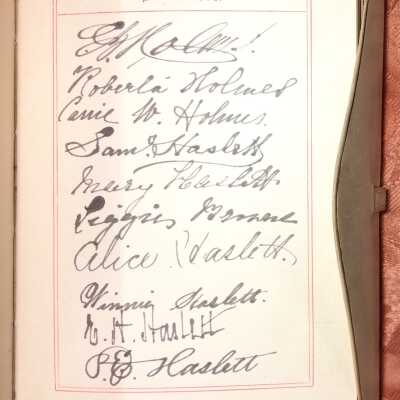 Roberta Holmes
Carrie W. Holmes
Saml. Haslett
Mary Haslett.
Browne
Alice Haslett.
Winnie Haslett.
H. Haslett
Haslett